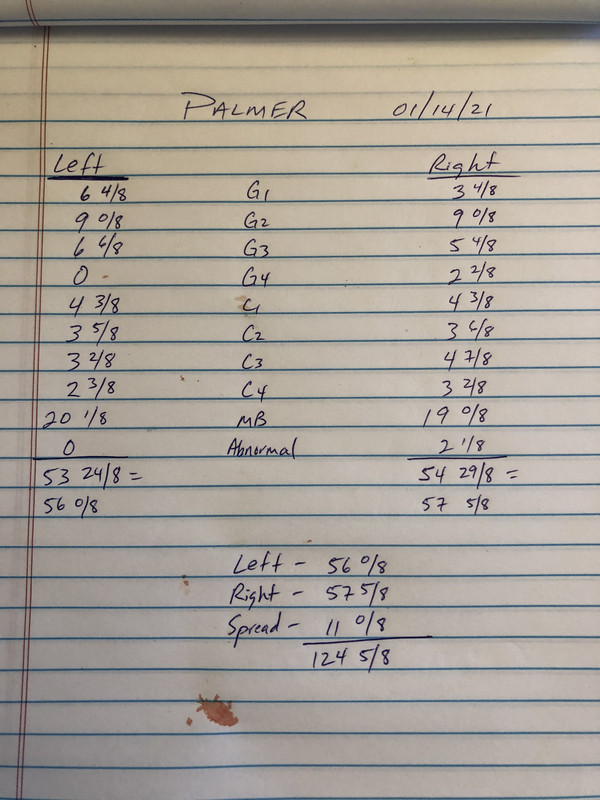 PALMER 01/14/21
Left Right
6 4/8 G1 3 4/8
9 0/8 G2 9 0/8
6 6/8 G3 5 4/8
0 G4 2 2/8
4 3/8 C1 4 3/8
3 5/8 C2 3 6/8
3 2/8 C3 4 7/8
2 3/8 C4 3 2/8
20 1/8 MB 19 0/8
0 Abnormal 2 1/8
53 24/8 = 54 29/8 =
56 0/8 57 5/8
Left - 56 0/8
Right - 57 5/8
Spread - 11 0/8
124 5/8